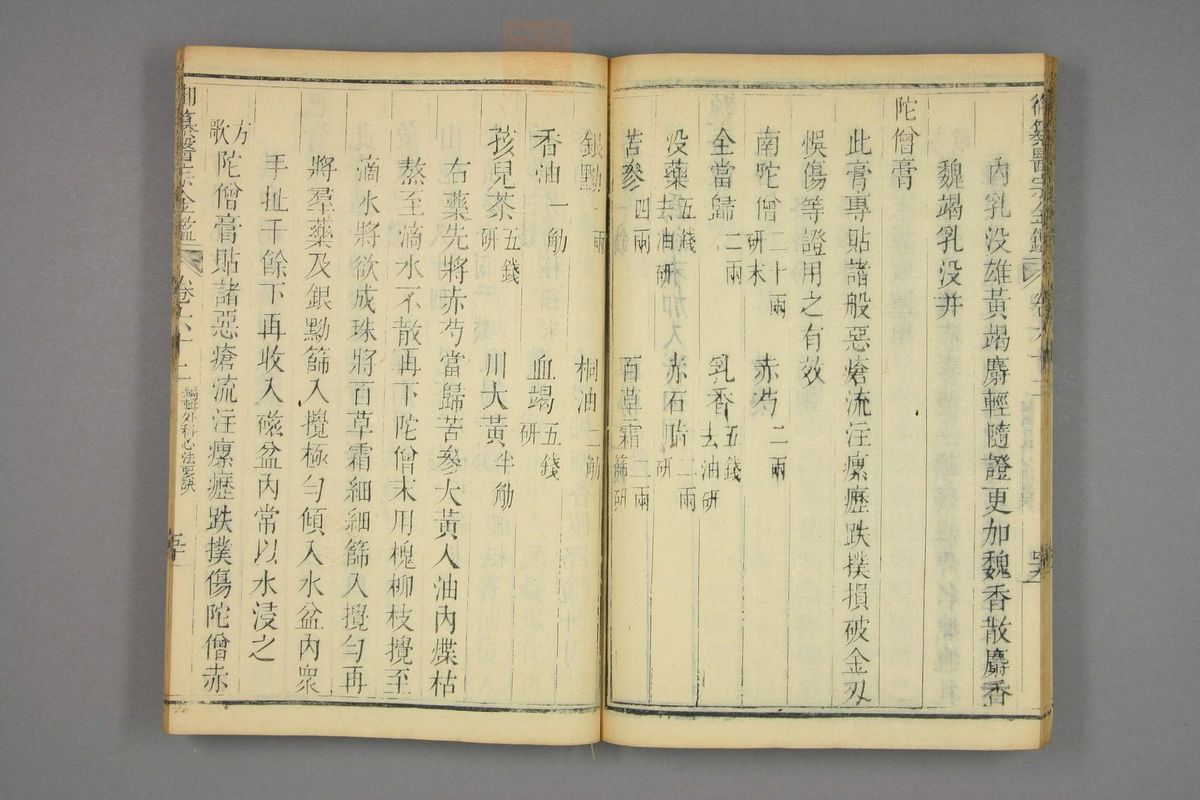 御纂醫宗金鑑 卷六十二
內乳没雄黃竭麝輕隨證更加魏香散麝香
魏竭乳没并
陀僧膏
此膏專貼諸般惡瘡流注瘰癧跌撲損破金刄
悞傷等證用之有效
南陀僧二十兩研末 赤芍二兩
全當歸二兩 乳香五錢去油研
没藥五錢去油研 赤石脂二兩研
苦參四兩 百草霜二兩篩研
銀黝一兩 桐油二觔
香油一觔 血竭五錢研
孩兒茶五錢研 川大黃半觔
右藥先將赤芍當歸苦參大黃入油內煠枯
熬至滴水不散再下陀僧末用槐柳枝攪至
滴水將欲成珠將百草霜細細篩入攪勻再
將羣藥及銀黝篩入攪極勻傾入水盆內衆
手扯千餘下再收入磁盆內常以水浸之
方歌 陀僧膏貼諸惡瘡流注瘰癧跌撲傷陀僧赤
御纂醫宗金鑑 卷六十二 編輯外科心法要訣